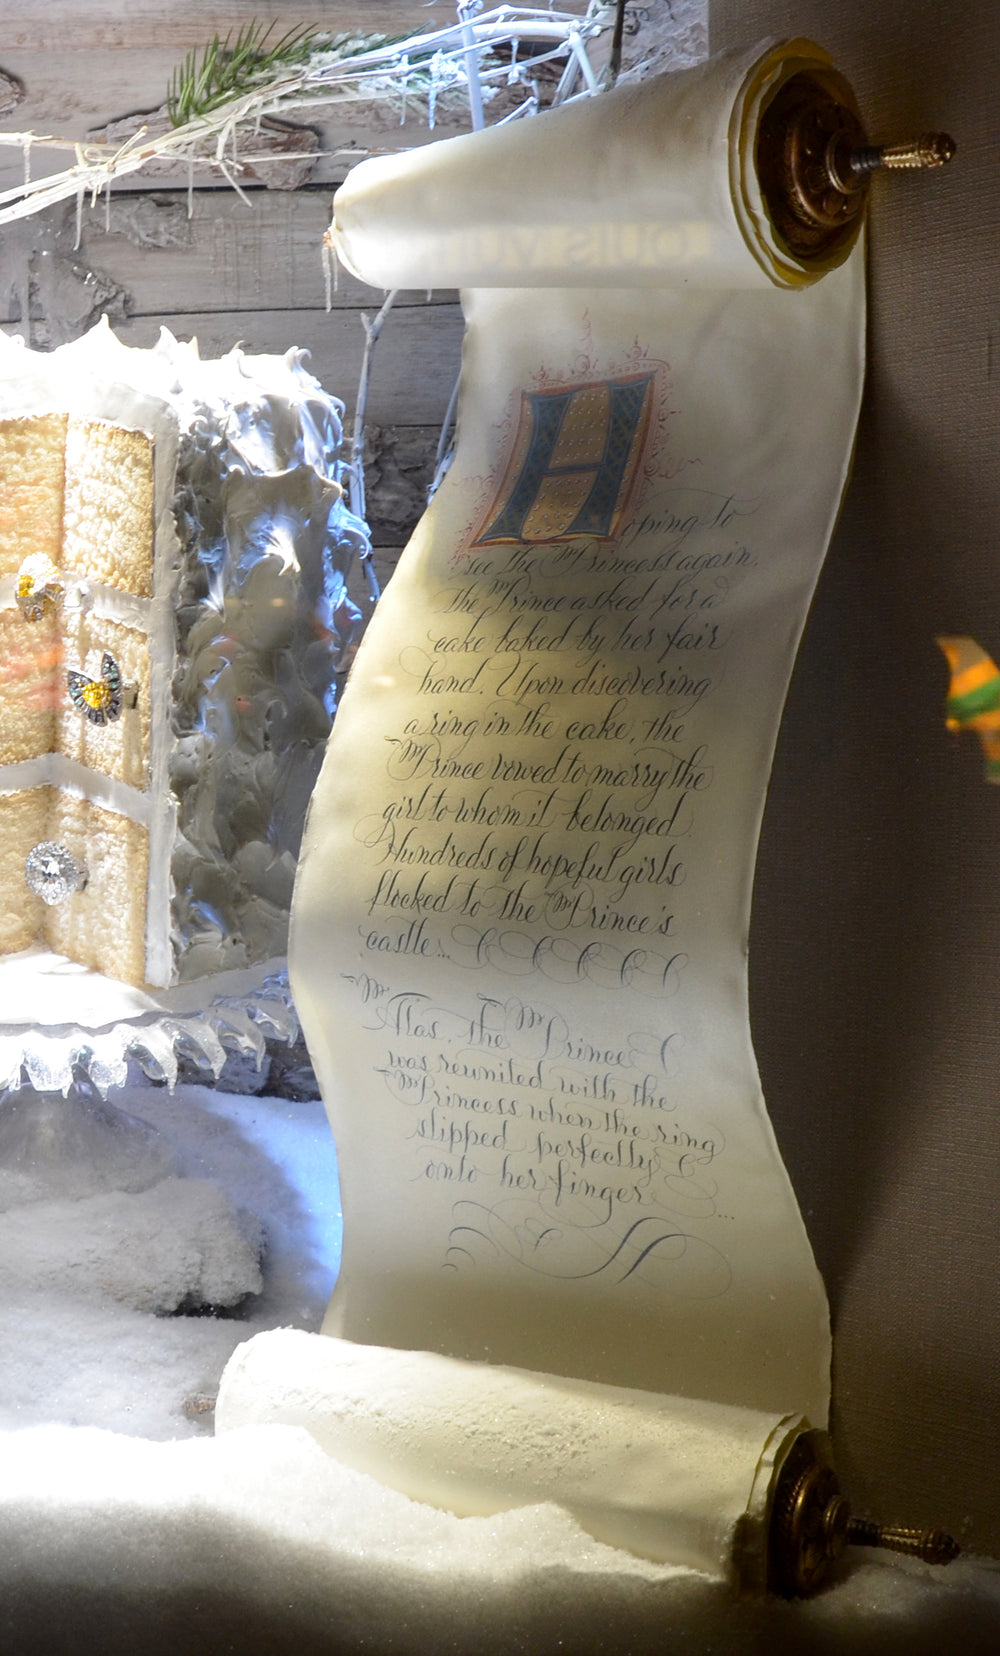 Hoping to
see the Princess again,
the Prince asked for a
cake baked by her fair
hand. Upon discovering
a ring in the cake, the
Prince vowed to marry the
girl to whom it belonged.
Hundreds of hopeful girls
flocked to the Prince's
castle...
Alas, the Prince
was reunited with the
Princess when the ring
slipped perfectly
onto her finger...